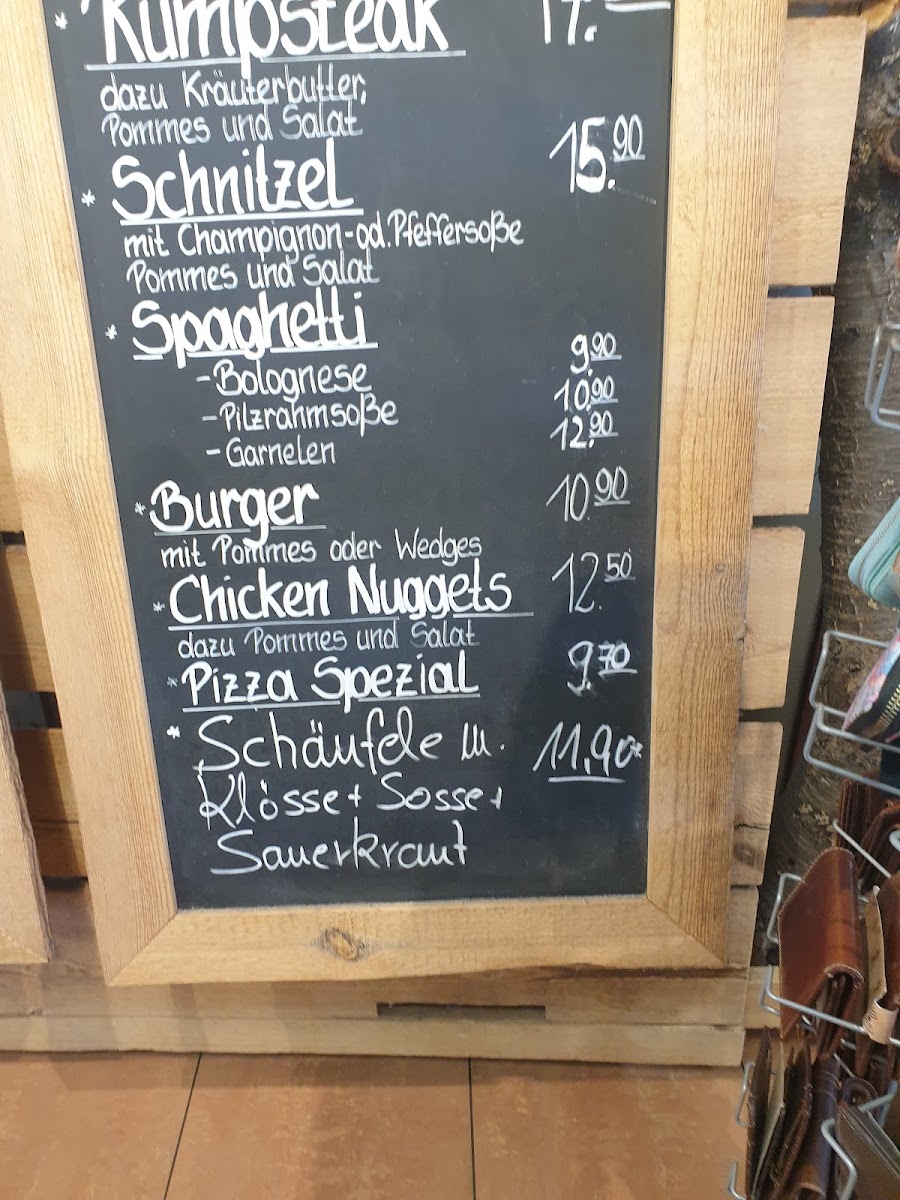 * Rumpsteak 17.
dazu Kräuterbutter,
Pommes und Salat
* Schnitzel 15.90
mit Champignon-od. Pfeffersoße
Pommes und Salat
* Spaghetti
-Bolognese 9.90
-Pilzrahmsoße 10.90
-Garnelen 12.90
* Burger 10.90
mit Pommes oder Wedges
* Chicken Nuggets 12.50
dazu Pommes und Salat
* Pizza Spezial 9.70
* Schäufele m. 11,90€
Klösse + Sosse +
Sauerkraut